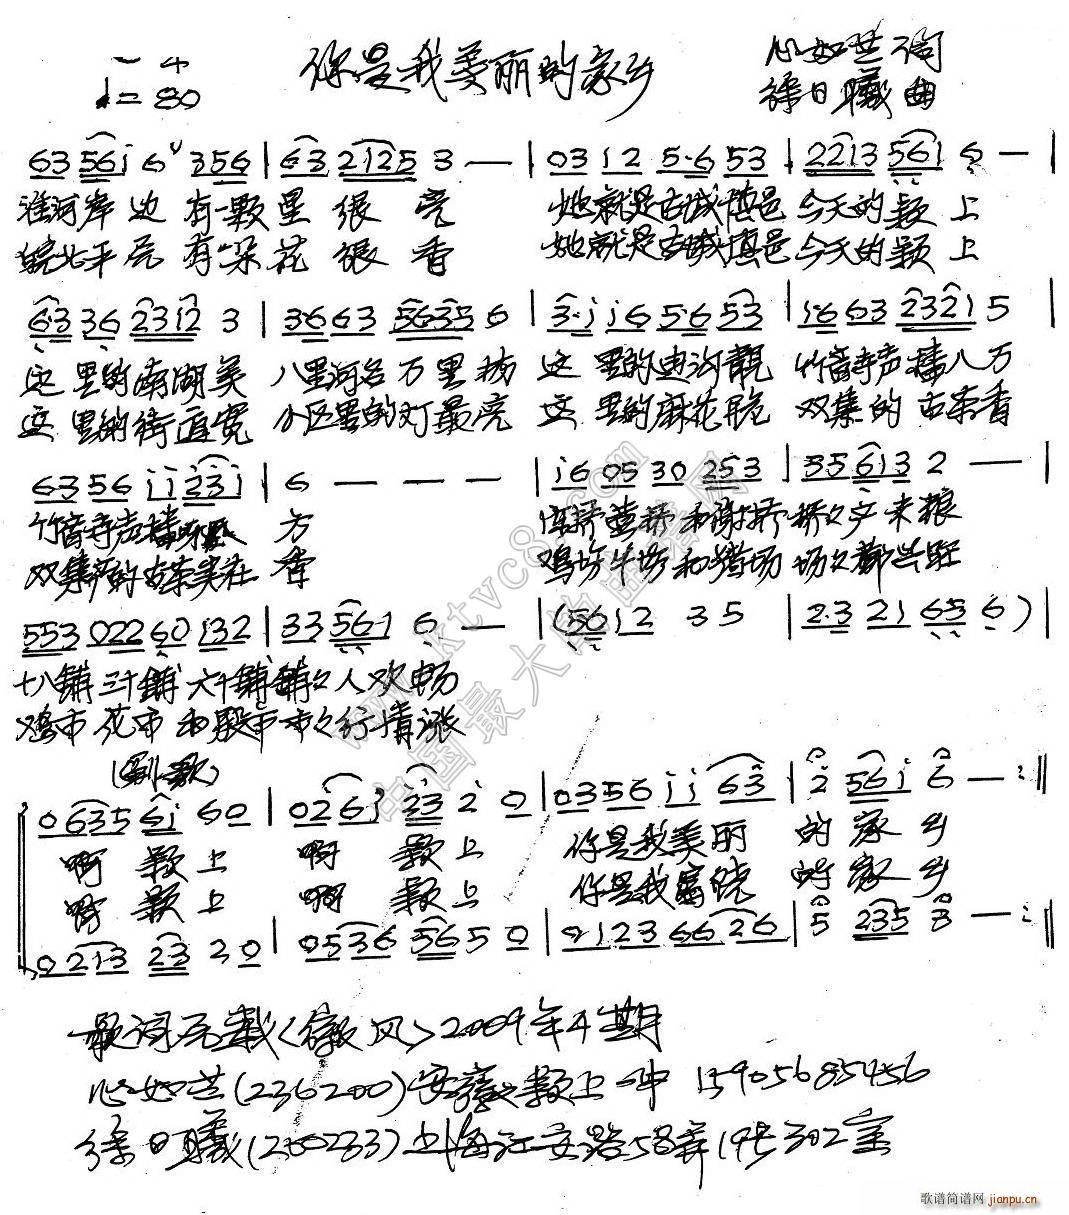 你是我美丽的家乡
心如芒词
♩=80
徐日曦曲
63 56i 6 356 | 63 2125 3 — | 03 12 5·6 53 | 2213 561 6 — |
淮河岸边 有一颗星 很 亮 她就是古城慎邑 今天的颖上
皖北平原 有一朵花 很 香 她就是古城慎邑 今天的颖上
6·3 36 2312 3 | 3·6 63 5635 6 | 3·i i6 5·6 53 | i·6 63 2321 5 |
这 里的南湖美 八里河名万里扬 这 里的迪沟靓 竹音寺声播八方
这 里的街道宽 小区里的灯最亮 这 里的麻花脆 双集的古茶香
63 56 ii 23i | 6 — — — | i6 05 30 253 | 35 613 2 — |
竹音寺声播 方 桥和谢桥 桥々产米粮
双集的古茶实在 香 鸡场牛场和猪场 场々都兴旺
553 022 60 132 | 33 561 6 — | (5612 3 5 | 2·3 21 65 6) |
十八铺三十铺六十铺铺々人欢畅
鸡市花市和 市市々行情涨
(副歌)
0635 6i 60 | 026i 23 2 0 | 0356 ii 63 | 2 56i 6 — :‖
啊 颖上 啊 颖上 你是我美丽 的家乡
啊 颖上 啊 颖上 你是我富饶 的家乡
0213 23 20 | 0536 56 5 0 | 0123 66 26 | 5 235 3 — :‖
歌词原载〈徽风〉2009年4期
心如芒(236200)安徽颖上一中 15905685456
徐日曦(200233)上海江安路58弄19号302室
www.ktvc8.com
中国最大的曲谱网
歌谱简谱网 jianpu.cn